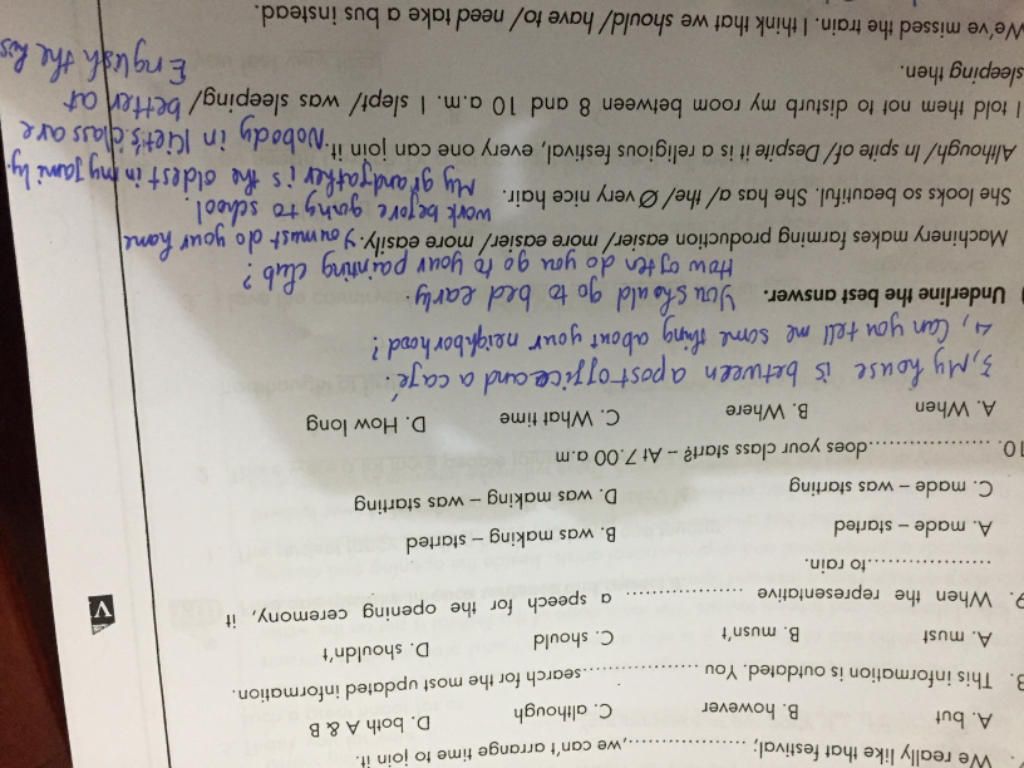 We really like that festival; ..................,we can't arrange time to join it.
A. but B. however C. although D. both A & B
This information is outdated. You ..................search for the most updated information.
A. must B. musn't C. should D. shouldn't
9. When the representative .................. a speech for the opening ceremony, it
..................to rain.
A. made – started B. was making – started
C. made – was starting D. was making – was starting
10. ..................does your class start? – At 7.00 a.m.
A. When B. Where C. What time D. How long
3, My house is between a post office and a café.
4, Can you tell me some thing about your neighborhood?
You should go to bed early.
Underline the best answer.
How often do you go to your painting club?
Machinery makes farming production easier/ more easier/ more easily. You must do your home
work before going to school.
She looks so beautiful. She has a/ the/ Ø very nice hair.
My grandfather is the oldest in my family.
Although/ In spite of/ Despite it is a religious festival, every one can join it.
Nobody in Kiet's class are
I told them not to disturb my room between 8 and 10 a.m. I slept/ was sleeping/ better at
sleeping then. English the his
We've missed the train. I think that we should/ have to/ need take a bus instead.
V